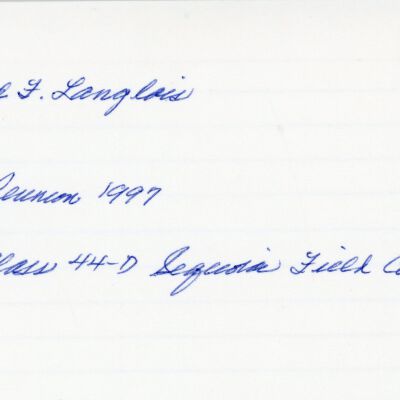 F. Langlois
Reunion 1997
Class 44-D Sequoia Field